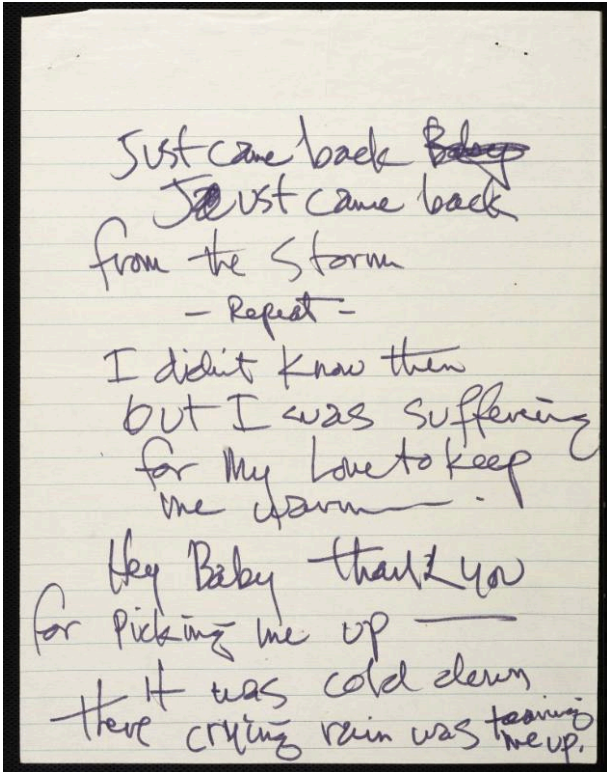 Just came back
Just came back
from the Storm
- Repeat -
I didn't Know then
but I was suffering
for My Love to keep
me warm — .
Hey Baby thank you
for Picking me up —
It was cold down
there crying rain was tearing
me up.